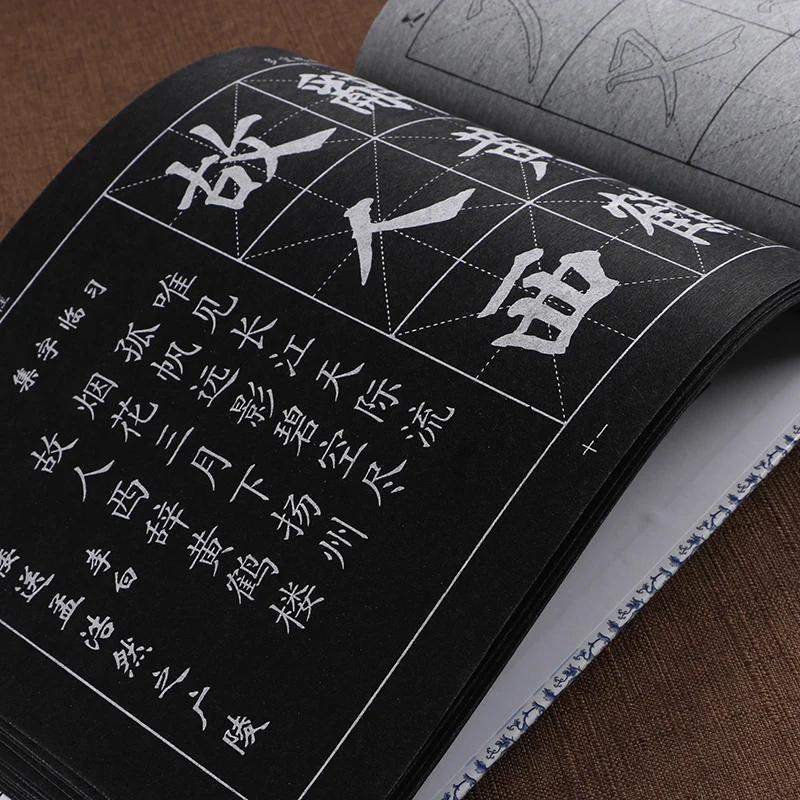 故人西
辭黄鶴
十一
集字临习
楼送孟浩然之广陵
李白
故人西辞黄鹤楼
烟花三月下扬州
孤帆远影碧空尽
唯见长江天际流